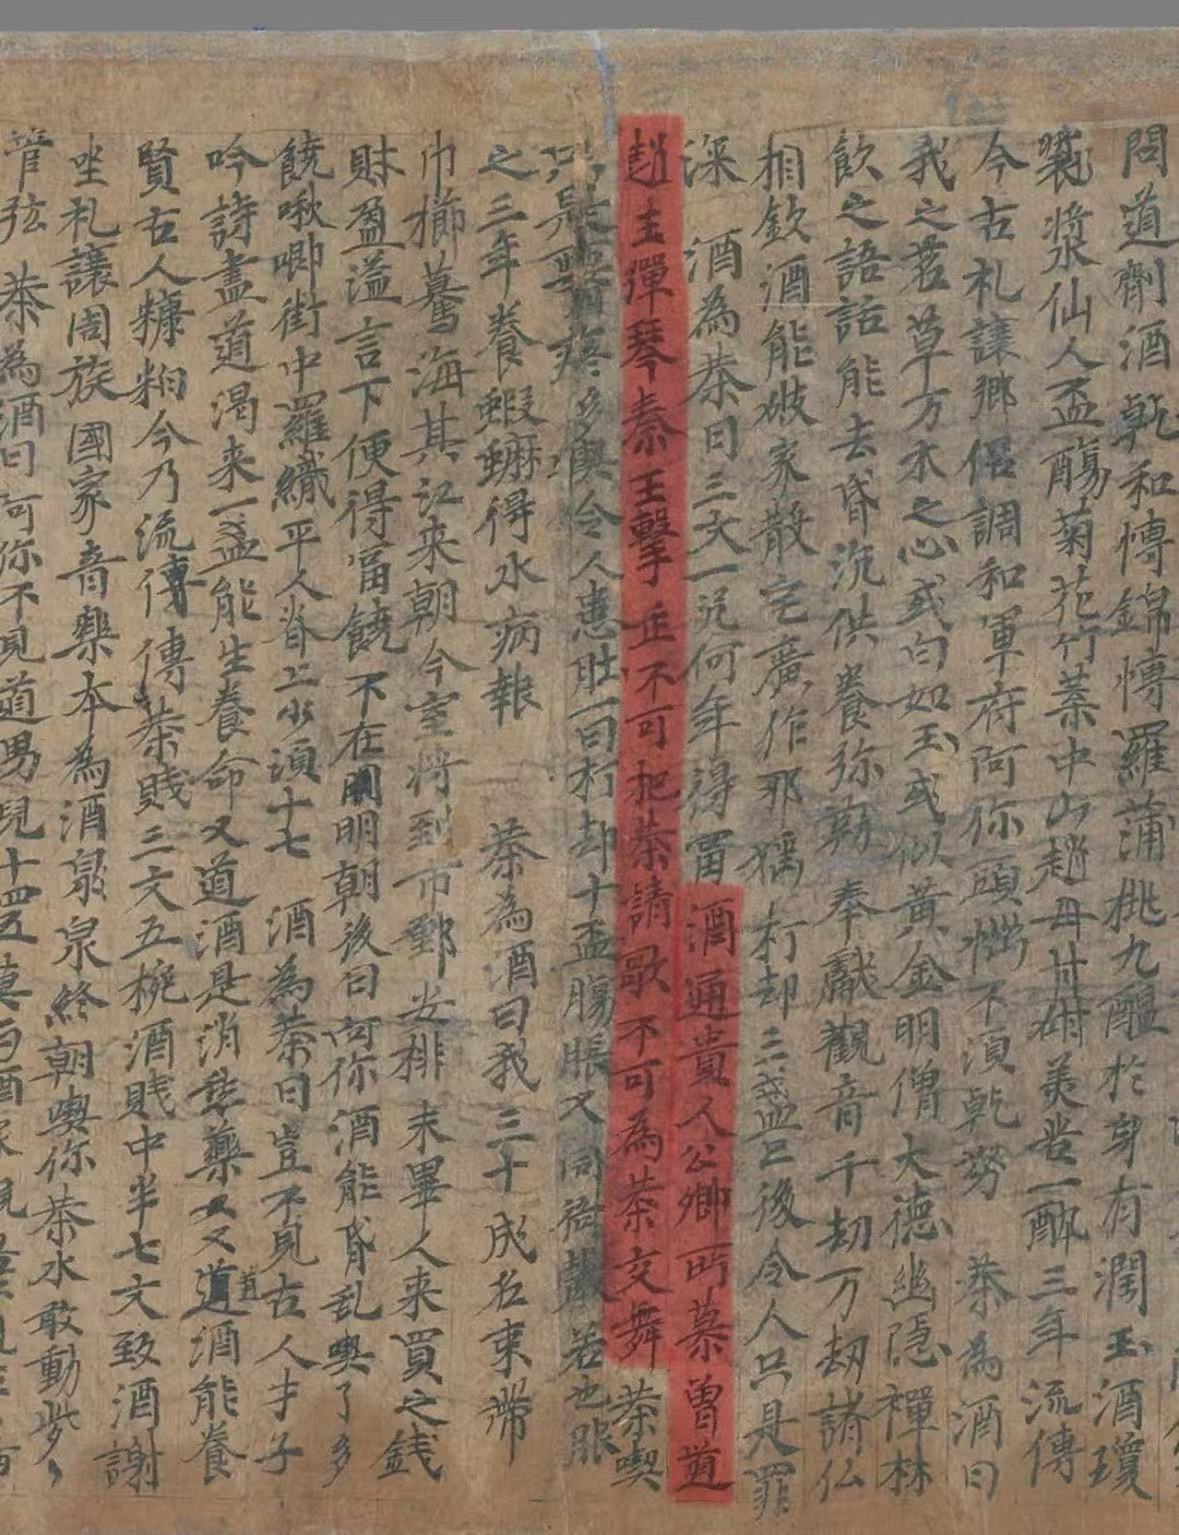 問道劑酒乾和慱錦慱羅蒲桃九醖於身有潤玉酒瓊
漿仙人盃觴菊花竹葉中山趙母甘甜美苦一酔三年流傳
今古礼讓鄉侶調和軍府阿你頭惱不須乾努 茶為酒曰
我之茗草万木之心或白如玉或似黃金明僧大德幽隱禪林
飲之語話能去昏沉供養弥勒奉獻觀音千劫万劫諸仏
相欽酒能破家散宅廣作邪婬打却三盞已後令人只是罪
深 酒為茶曰三文一何年得富酒通貴人公卿所慕曾道
趙主彈琴秦王擊缶不可把茶請歌不可為茶交舞茶喫
只是疼多喫令人患肚一日打却十盃腸脹又同衙鼓若也服
之三年養蝦蟆得水病報 茶為酒曰我三十成名束帶
巾櫛驀海其江来朝今室将到市鄽安排未畢人来買之錢
財盈溢言下便得富饒不在明朝後日阿你酒能昏乱喫了多
饒啾唧街中羅織平人脊上少須十七 酒為茶曰豈不見古人才子
吟詩盡道渴来一盞能生養命又道酒是消愁藥又又道酒能養
賢古人糠粕今乃流傳傳茶賤三文五椀酒賤中半七文致酒謝
坐礼讓周旋國家音樂本為酒泉終朝喫你茶水敢動些々
管弦 茶為酒曰阿你不見道男兒十四五莫与酒家親